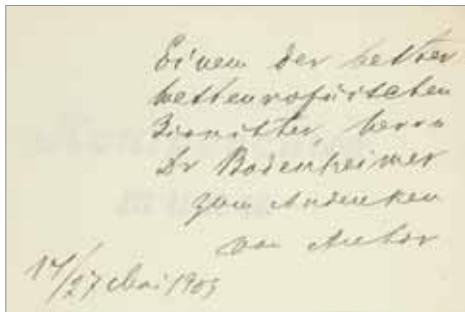 Einem der besten
westeuropäischen
Zionisten, Herrn
Dr Bodenheimer
zum Andenken
vom Autor
14/27 Mai 1903